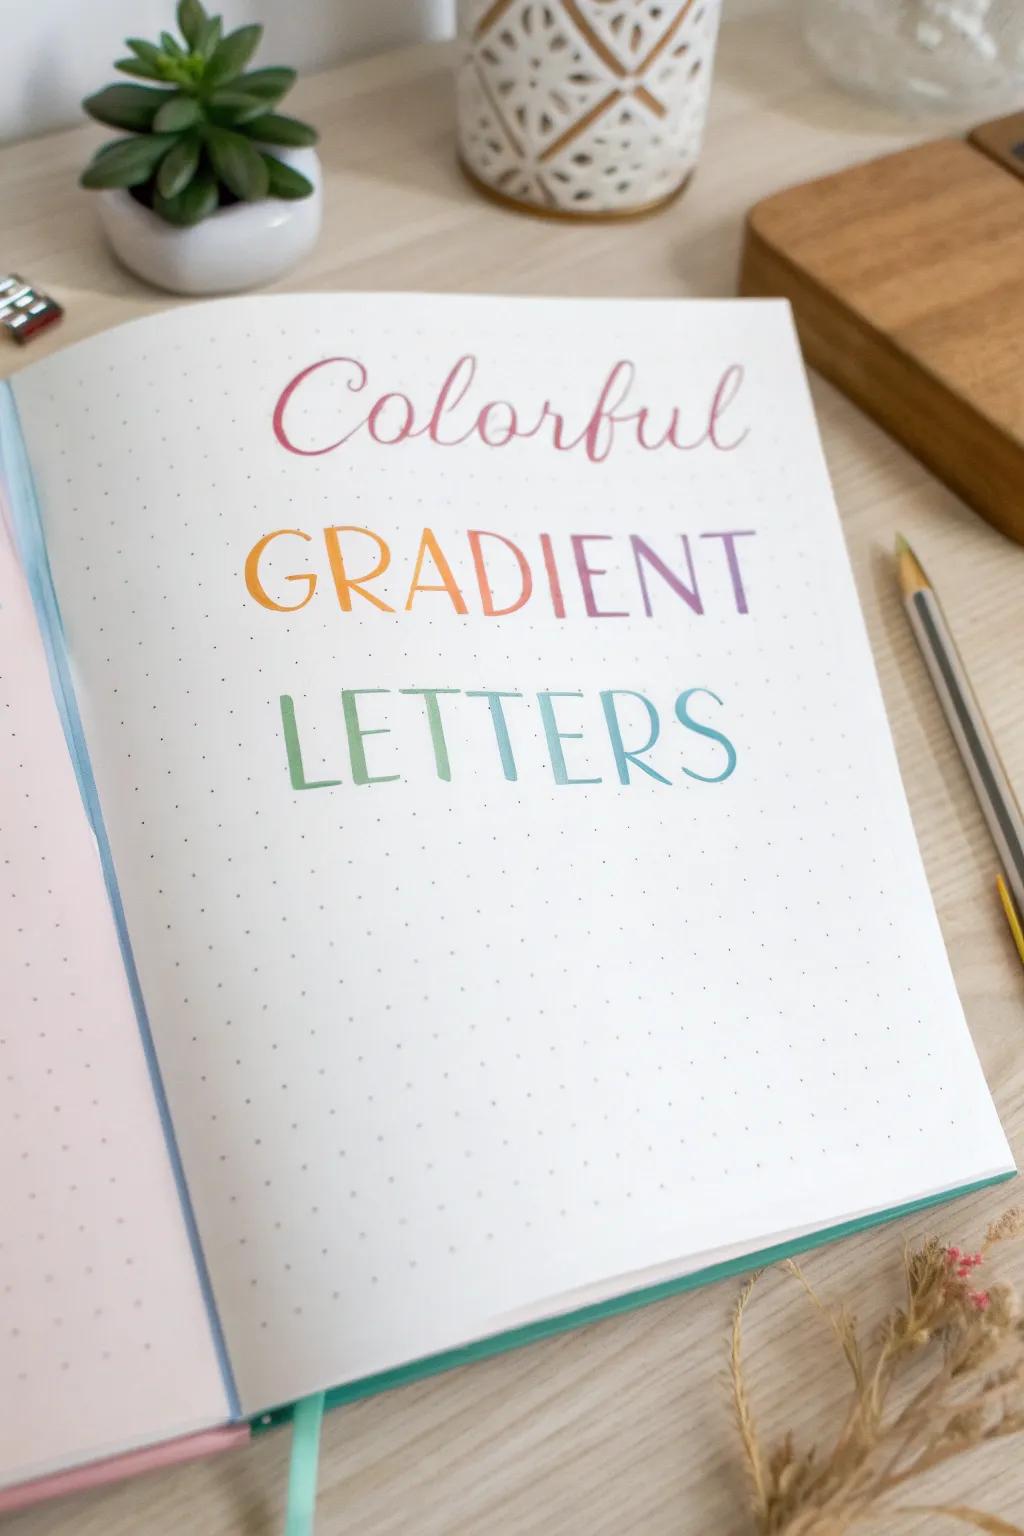 Colorful
GRADIENT
LETTERS